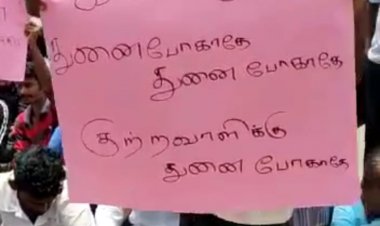 துணைபோகாதே
துணை போகாதே
குற்றவாளிக்கு
துணை போகாதே